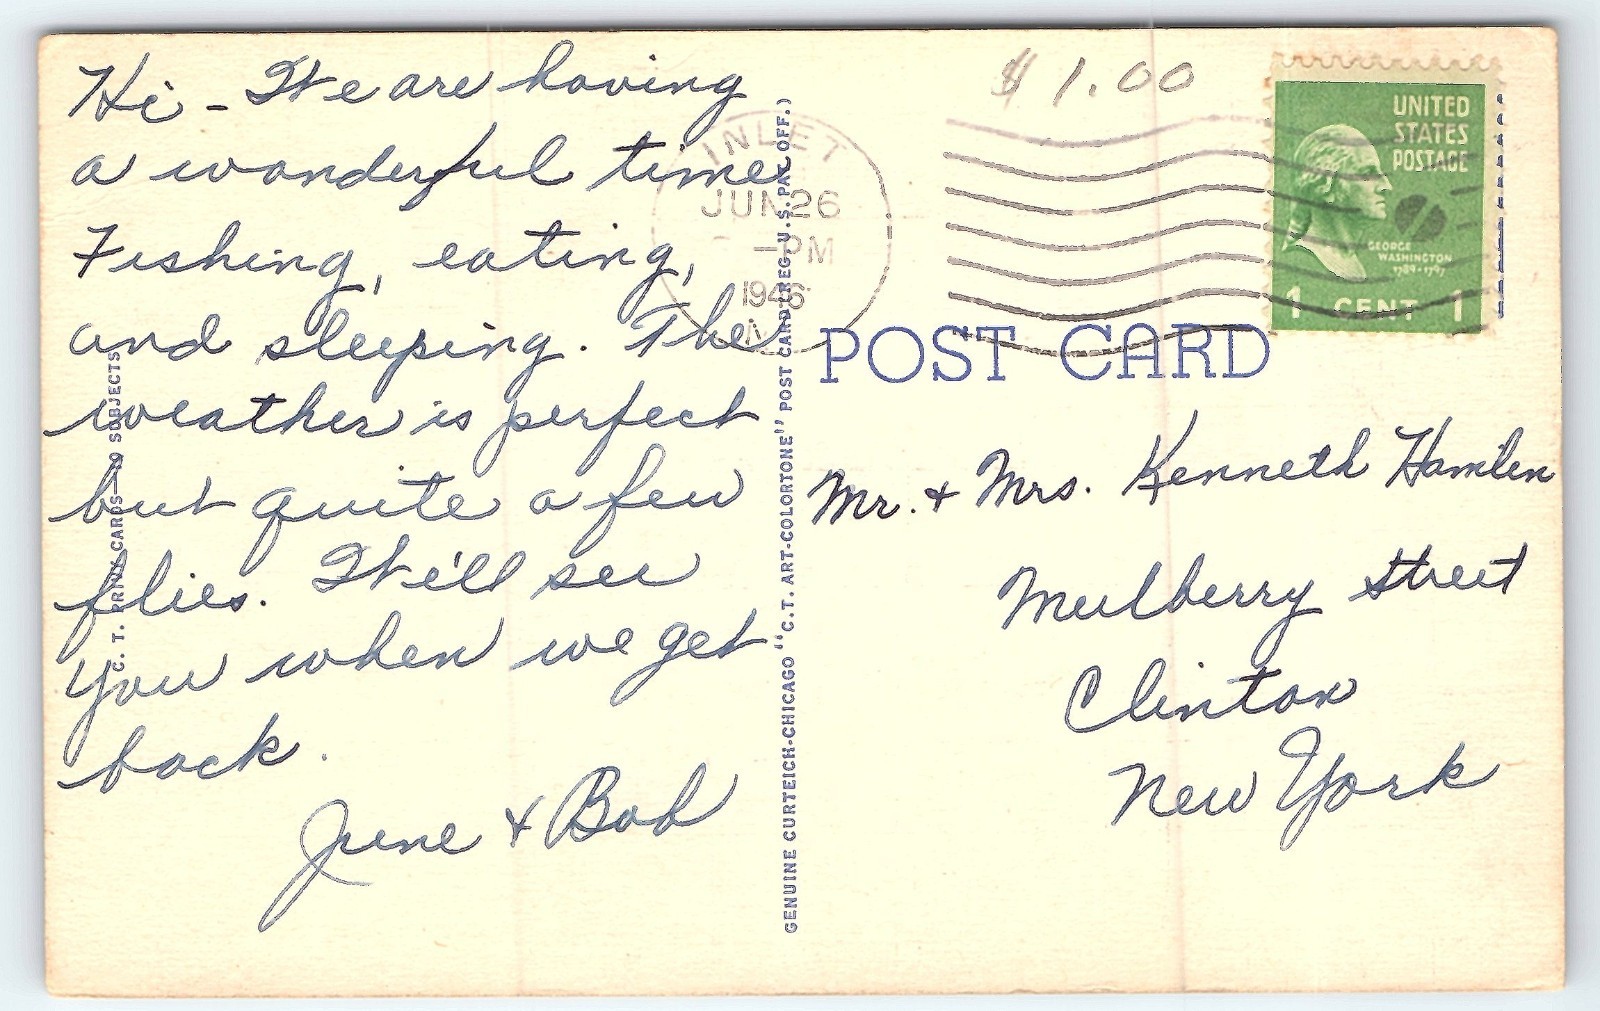 Hi - We are having
a wonderful time
Fishing, eating,
and sleeping. The
weather is perfect
but quite a few
flies. We'll see
you when we get
back.
June & Bob
C. T. ARMY CARDS—10 SUBJECTS
GENUINE CURTEICH-CHICAGO "C.T. ART-COLORTONE" POST CARD (REG. U.S. PAT. OFF.)
$1.00
INLET
JUN 26
-PM
1946
UNITED
STATES
POSTAGE
GEORGE
WASHINGTON
1789-1797
1 CENT 1
POST CARD
Mr. & Mrs. Kenneth Hamlen
Mulberry Street
Clinton
New York